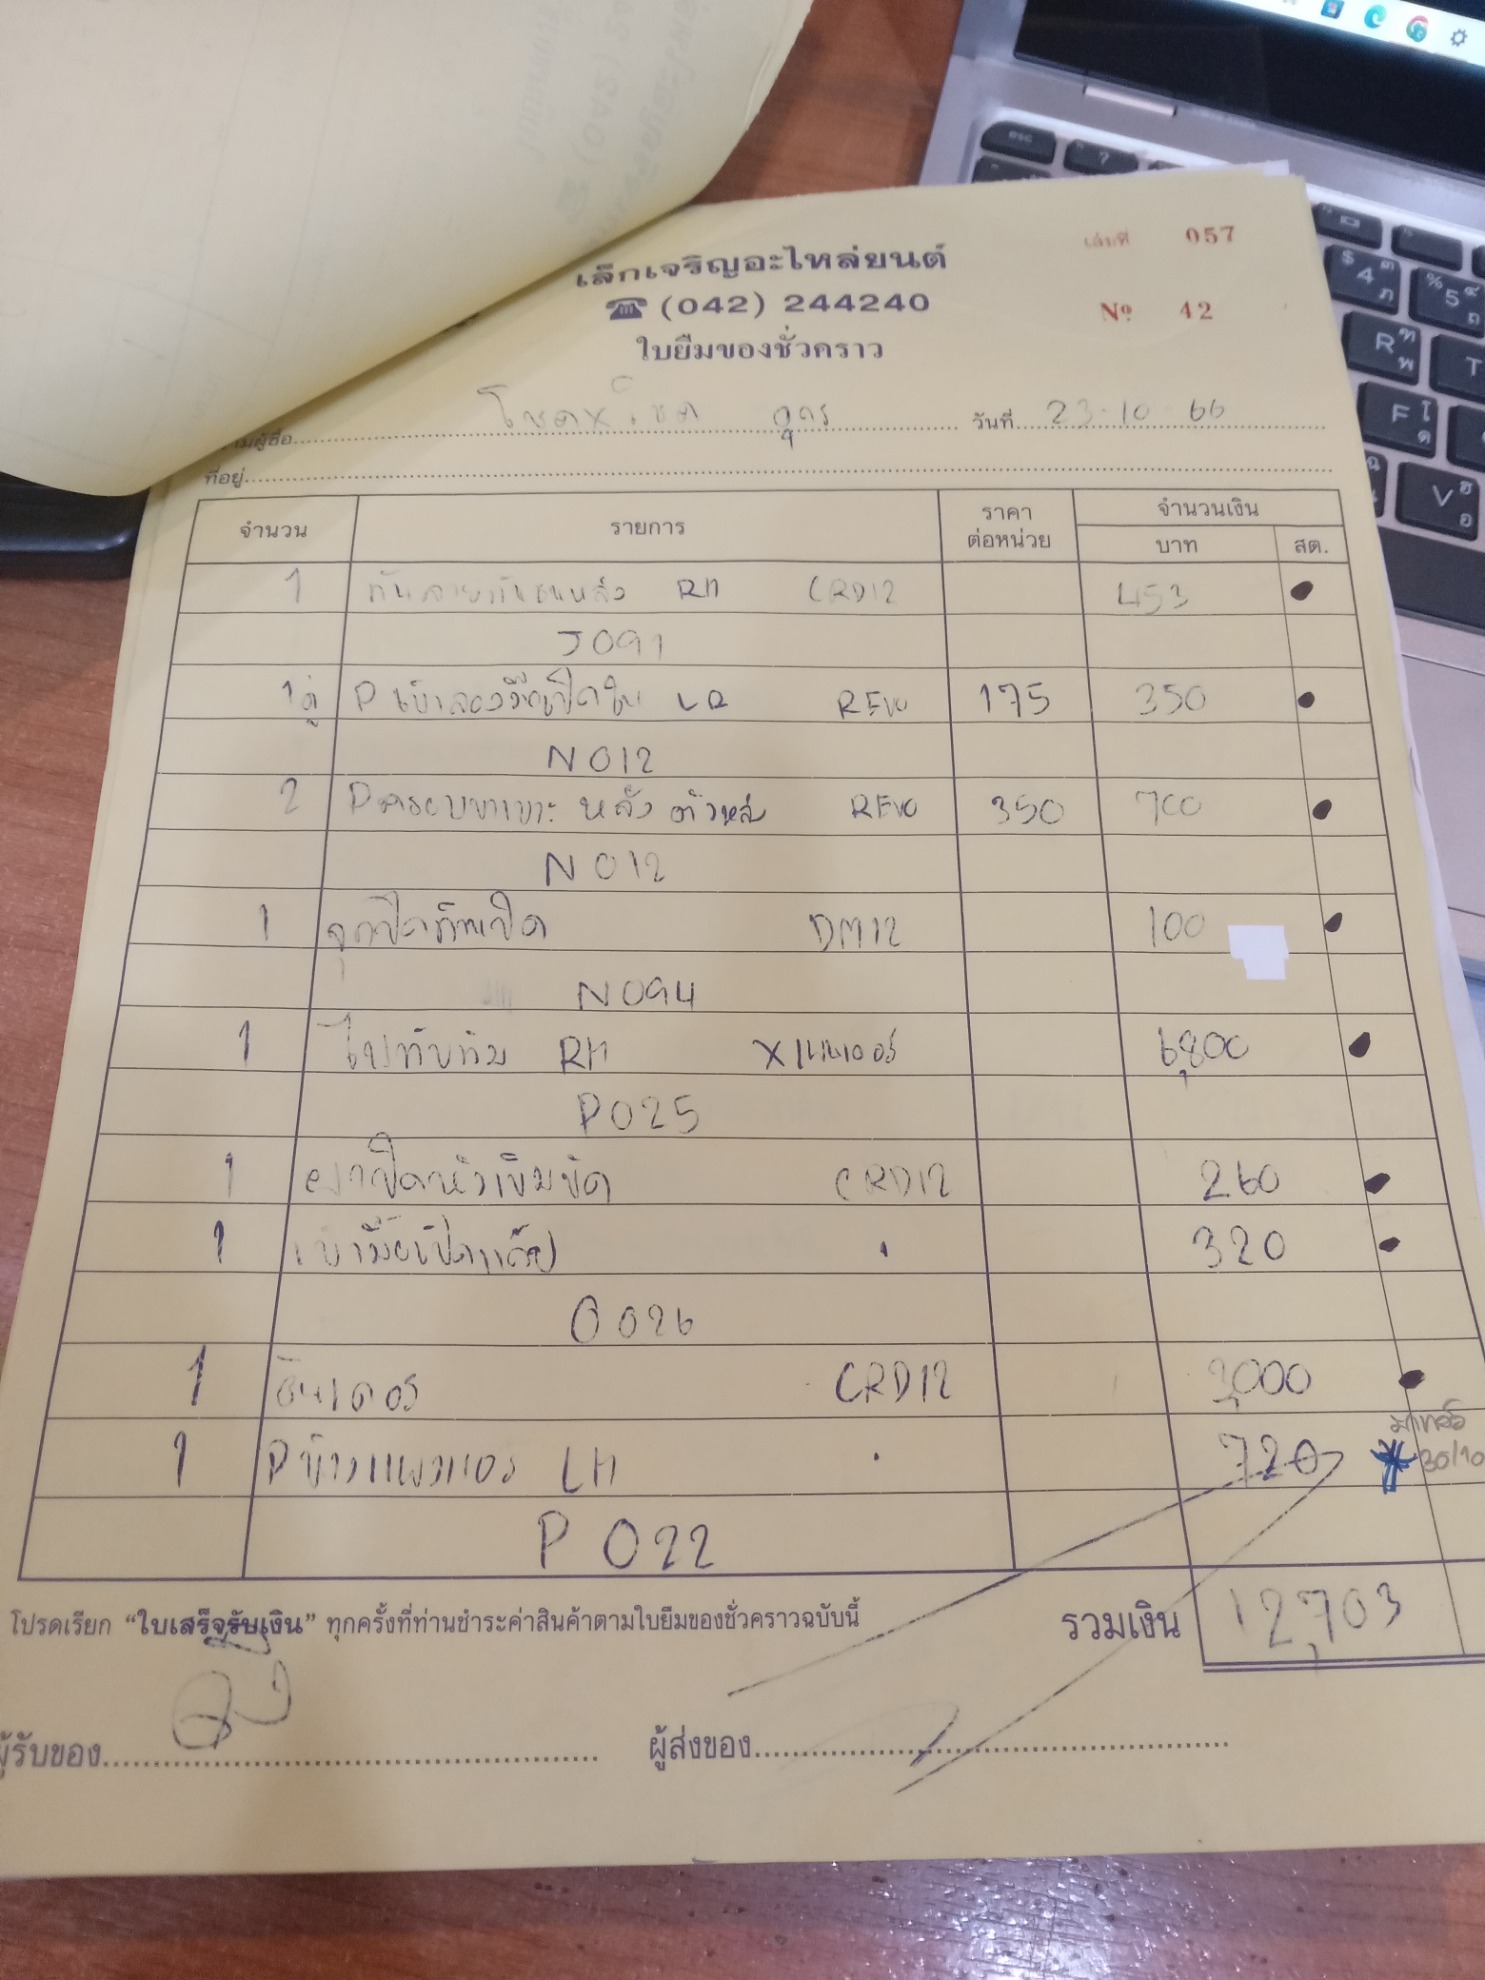 เล่มที่ 057
เล็กเจริญอะไหล่ยนต์
☎ (042) 244240
Nº 42
ใบยืมของชั่วคราว
ผู้ซื้อ โชคxโชค อุดร วันที่ 23-10-66
ที่อยู่
จำนวน รายการ ราคาต่อหน่วย จำนวนเงิน
บาท สต.
1 กันลายกันชนหลัง RH CRD12 453
J091
1คู่ P เบ้ารองมือเปิดใน LR REVO 175 350
N012
2 P ครอบขาเบาะ หลัง ตัวหลัง REVO 350 700
N012
1 DM12 100
N094
1 ไฟทับทิม RH 6,800
P025
1 ฝาปิดหัวเข็มขัด CRD12 260
1 320
O026
1 CRD12 3,000
1 LH 720
30/10
P022
โปรดเรียก “ใบเสร็จรับเงิน” ทุกครั้งที่ท่านชำระค่าสินค้าตามใบยืมของชั่วคราวฉบับนี้ รวมเงิน 12,703
ผู้รับของ ผู้ส่งของ